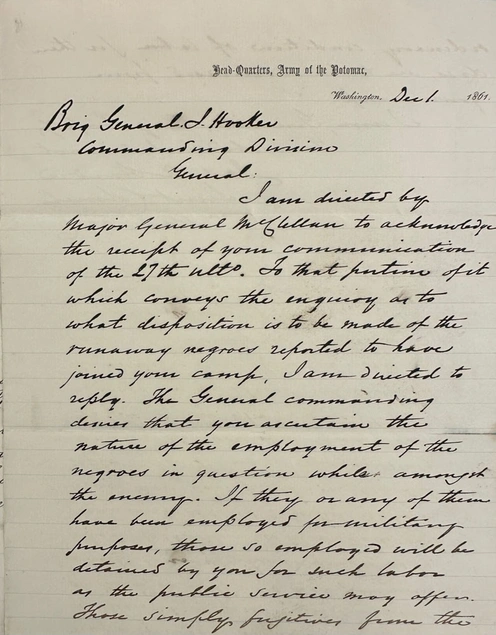 Head-Quarters, Army of the Potomac,
Washington, Dec 1. 1861.
Brig General. J. Hooker
Commanding Division
General:
I am directed by
Major General McClellan to acknowledge
the receipt of your communication
of the 27th ulto. To that portion of it
which conveys the enquiry as to
what disposition is to be made of the
runaway negroes reported to have
joined your camp, I am directed to
reply. The General commanding
desires that you ascertain the
nature of the employment of the
negroes in question while amongst
the enemy. If they or any of them
have been employed for military
purposes, those so employed will be
detained by you for such labor
as the public service may offer.
Those simply fugitives from the